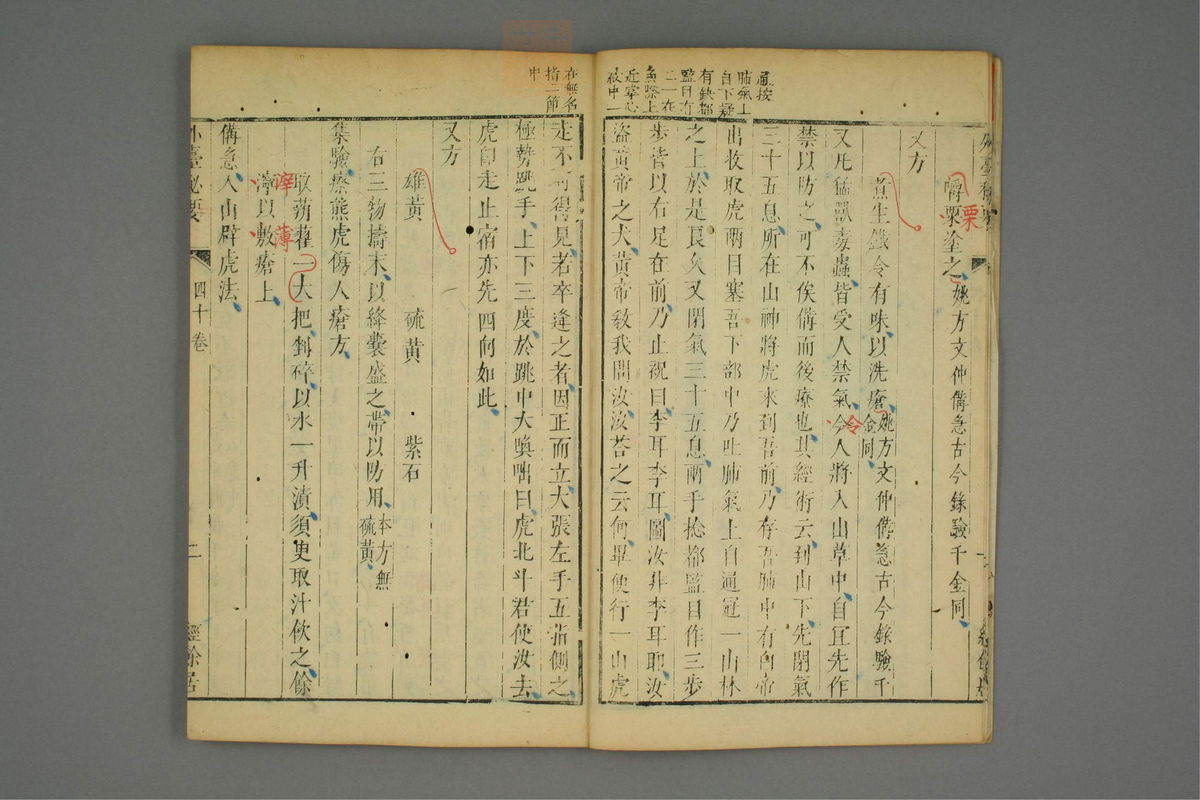 屢按
肺氣上
自下疑
有缺都
監目有
二一在
魚際上
近掌心
彼中一
外臺秘要
嚼栗塗之姚方文仲備急古今錄驗千金同
栗
又方
煮生鐵令有味以洗瘡姚方文仲備急古今錄驗千
金同
又凡猛獸毒蟲皆受人禁氣今人將入山草中自宜先作
令
禁以防之可不俟備而後療也其經術云到山下先閉氣
三十五息所在山神將虎來到吾前乃存吾肺中有白帝
出收取虎兩目塞吾下部中乃吐肺氣上自通冠一山林
之上於是良久又閉氣三十五息兩手捻都監目作三步
步皆以右足在前乃止祝曰李耳李耳圖汝非李耳耶汝
盜黃帝之犬黃帝敎我問汝汝荅之云何畢便行一山虎
在無名
指二節
中
走不可得見若卒逢之者因正而立大張左手五指側之
極勢跳手上下三度於跳中大喚咄曰虎北斗君使汝去
虎卽走止宿亦先四向如此
又方
雄黃 硫黃 紫石
右三物擣末以絳囊盛之帶以防用本方無
硫黃
集驗療熊虎傷人瘡方
取蒴藋一大把剉碎以水一升漬須臾取汁飲之餘
滓 薄
滓以敷瘡上
備急人山辟虎法
外臺秘要 四十卷 二 經餘居